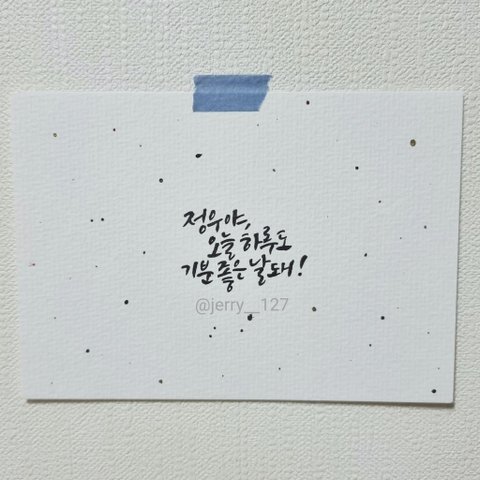 정우야,
오늘 하루도
기분 좋은 날 돼!
@jerry__127